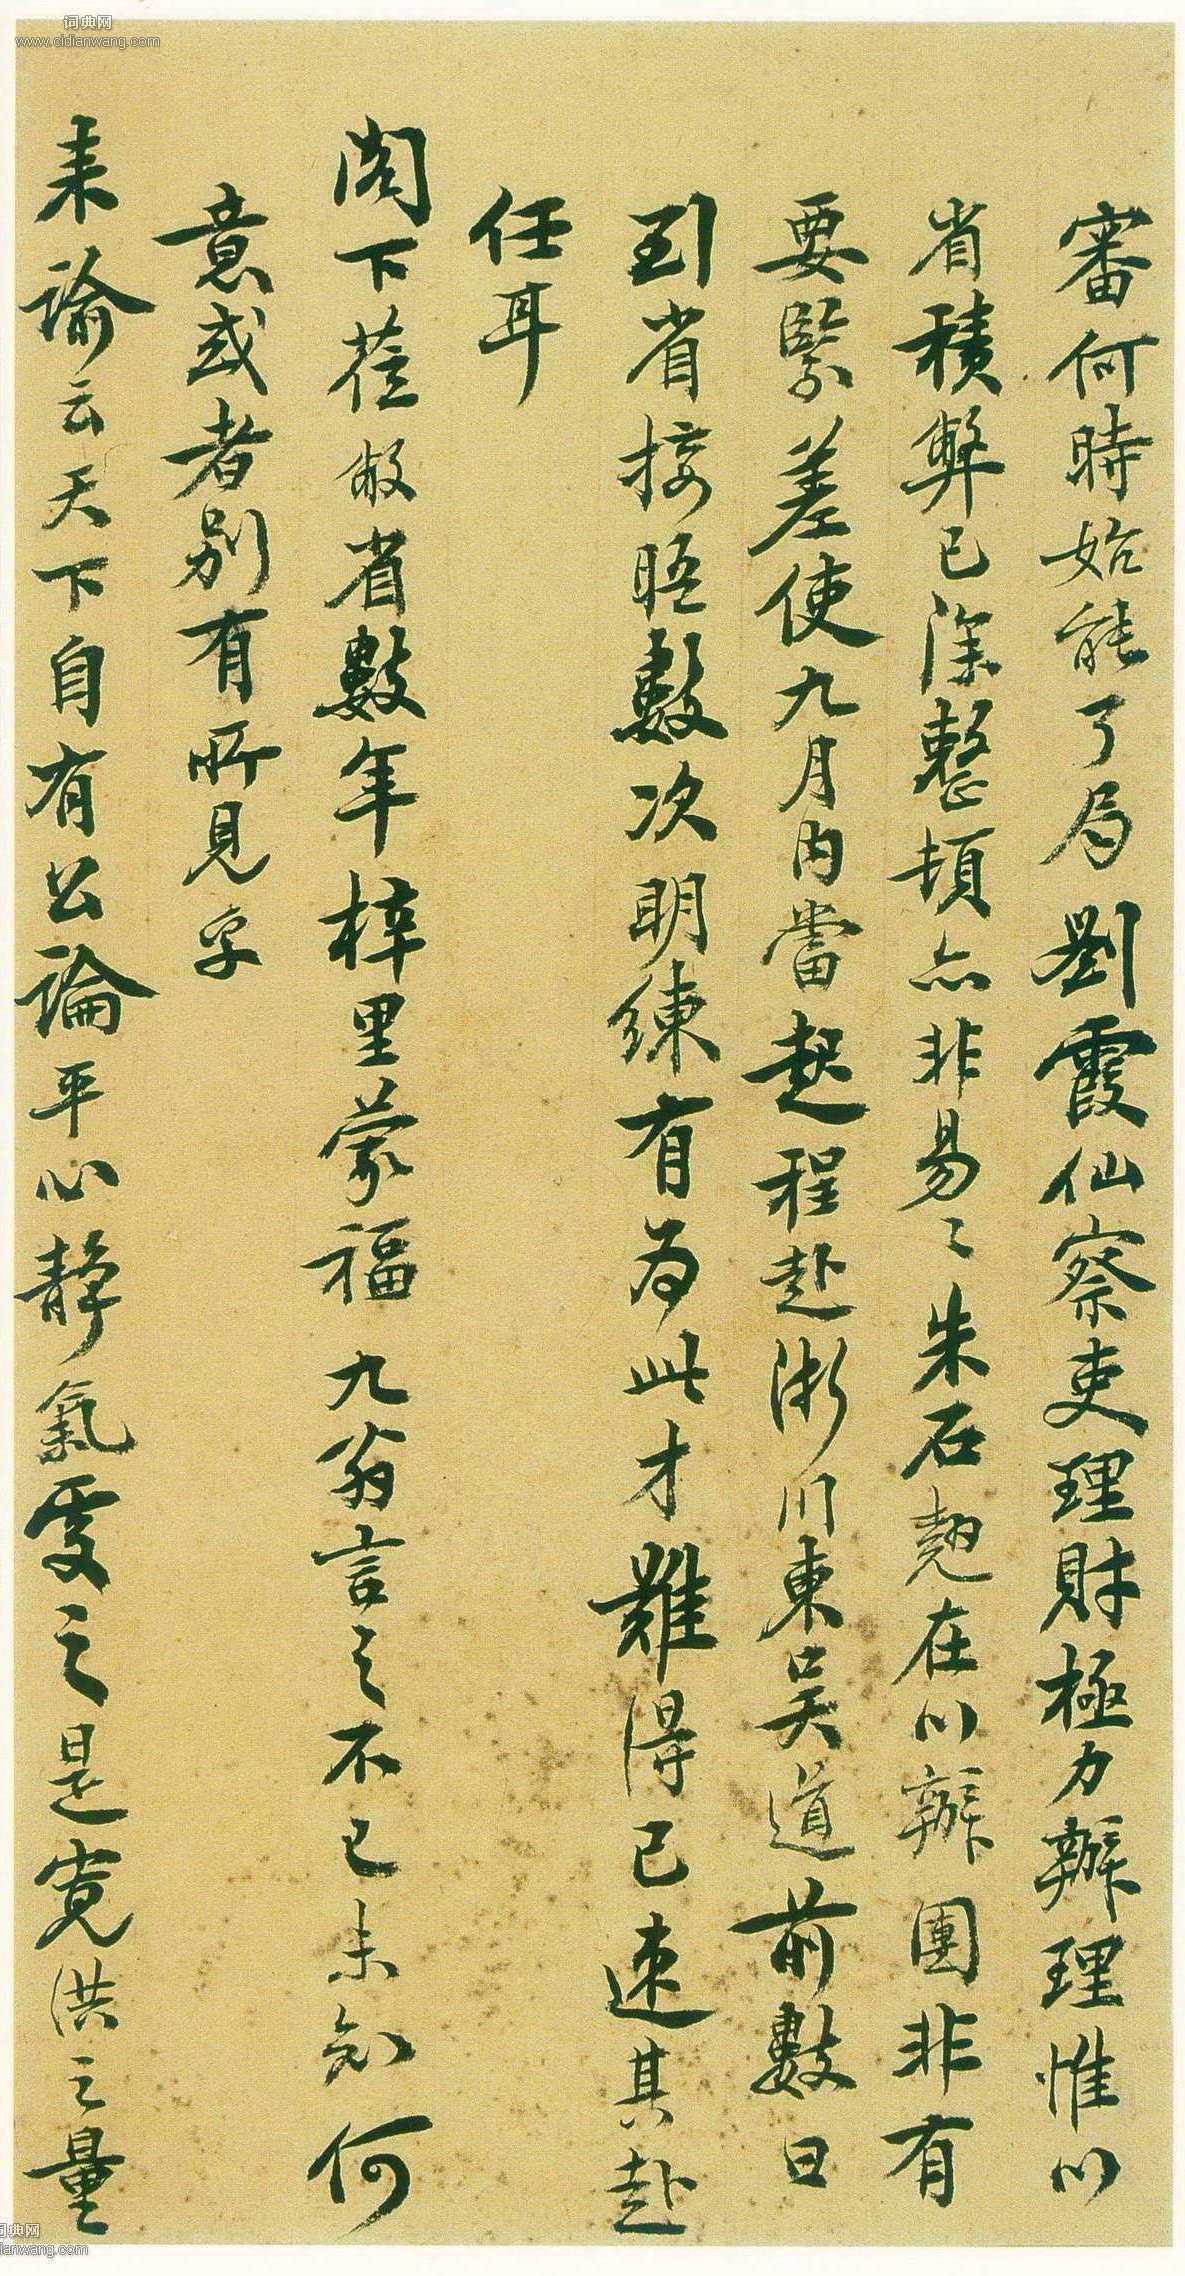 审何時始能了局劉霞仙察吏理財極力辦理惟川
省積弊已深整頓亦非易易朱石翹在川辦團非有
要緊差使九月內當起程赴浙川東吳道前數日
到省接晤數次明練有為此才難得已速其赴
任耳
閣下莅敝省數年梓里蒙福九翁言之不已未知何
意或者別有所見字
来諭云天下自有公論平心靜氣受之是寬洪之量
词典网
www.cidianwang.com
词典网
dianwang.com